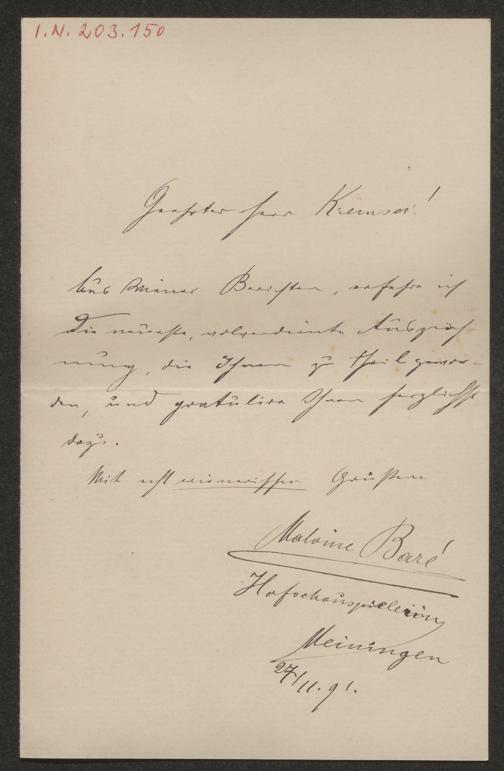 I.N. 203.150
Geehrter Herr Kremser!
Aus Wiener Berichten, erfahre ich
die neueste, wolverdiente Auszeich-
nung, die Ihnen zu theil gewor-
den, und gratulire Ihnen herzlichst
dazu.
Mit echt wienerischen Grüßen
Malvine Baré
Hofschauspielerin
Meiningen
27/11.91.